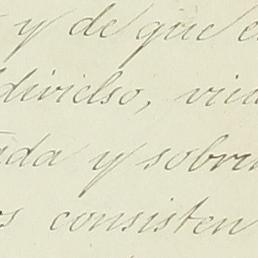 y de que e
dividso, viu
ada y sobri
os consisten